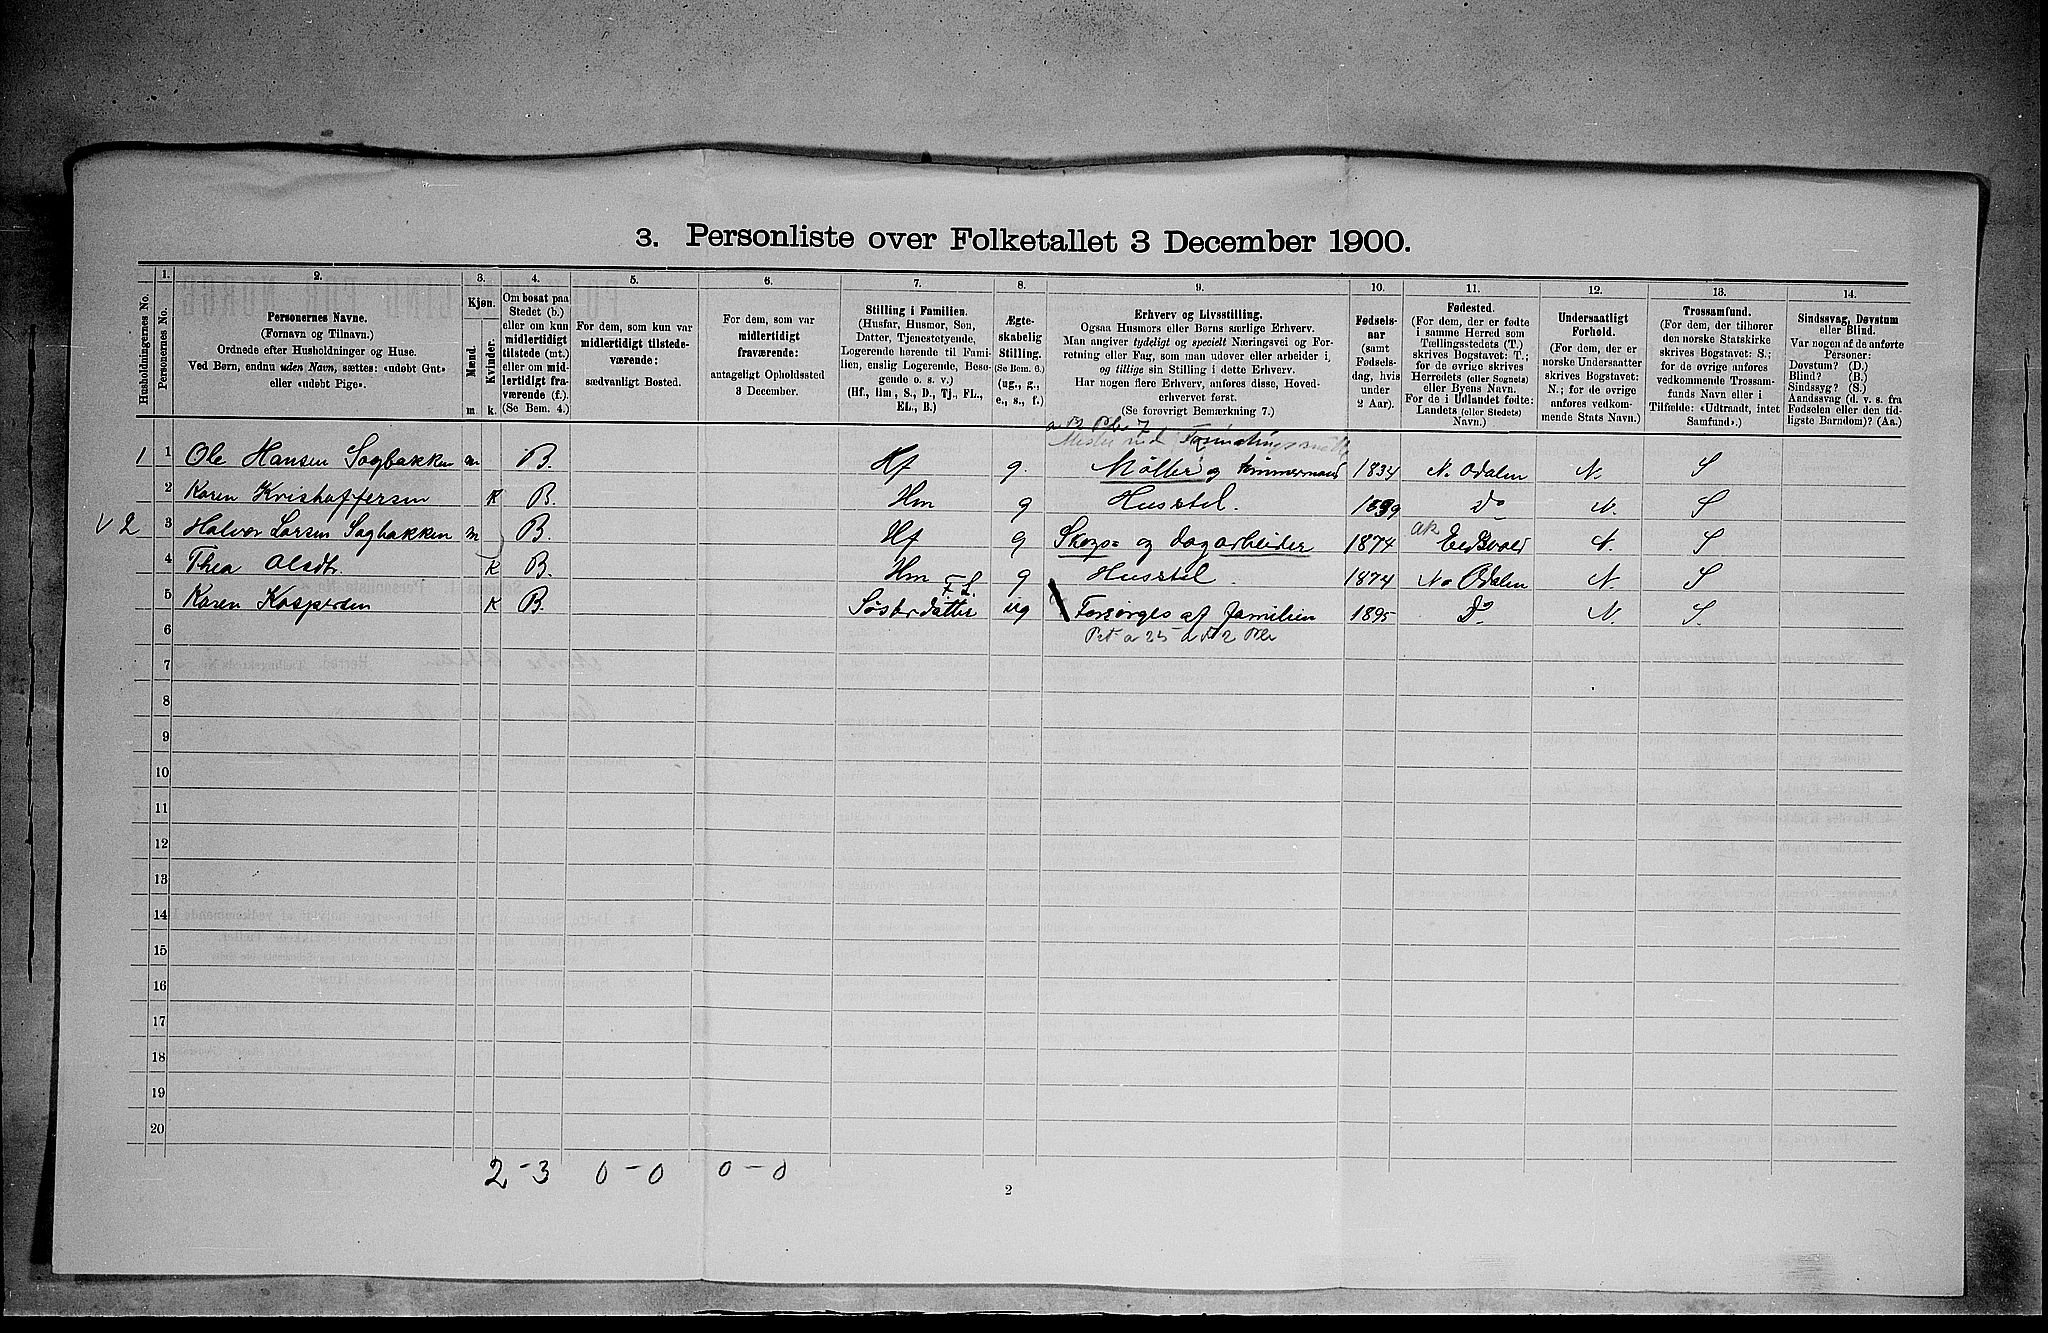 3. Personliste over Folketallet 3 December 1900.
Husholdningernes No.
1.
Personernes No.
2.
Personernes Navne.
(Fornavn og Tilnavn.)
Ordnede efter Husholdninger og Huse.
Ved Børn, endnu uden Navn, sættes: «udøbt Gut»
eller «udøbt Pige».
3.
Kjøn.
Mænd.
Kvinder.
m. k.
4.
Om bosat paa
Stedet (b.)
eller om kun
midlertidigt
tilstede (mt.)
eller om mid-
lertidigt fra-
værende (f.).
(Se Bem. 4.)
5.
For dem, som kun var
midlertidigt tilstede-
værende:
sædvanligt Bosted.
6.
For dem, som var
midlertidigt
fraværende:
antageligt Opholdssted
3 December.
7.
Stilling i Familien.
(Husfar, Husmor, Søn,
Datter, Tjenestetyende,
Logerende hørende til Fami-
lien, enslig Logerende, Besø-
gende o. s. v.)
(Hf., Hm., S., D., Tj., FL.,
EL., B.)
8.
Ægte-
skabelig
Stilling.
(Se Bem. 6.)
(ug., g.,
e., s., f.)
9.
Erhverv og Livsstilling.
Ogsaa Husmors eller Børns særlige Erhverv.
Man angiver tydeligt og specielt Næringsvei og For-
retning eller Fag, som man udøver eller arbeider i,
og tillige sin Stilling i dette Erhverv.
Har nogen flere Erhverv, anføres disse, Hoved-
erhvervet først.
(Se forøvrigt Bemærkning 7.)
10.
Fødsels-
aar
(samt
Fødsels-
dag, hvis
under
2 Aar).
11.
Fødested.
(For dem, der er fødte
i samme Herred som
Tællingsstedets (T.)
skrives Bogstavet: T.;
for de øvrige skrives
Herredets (eller Sognets)
eller Byens Navn.
For de i Udlandet fødte:
Landets (eller Stedets)
Navn.)
12.
Undersaatligt
Forhold.
(For dem, der er
norske Undersaatter
skrives Bogstavet:
N.; for de øvrige
anføres vedkom-
mende Stats Navn.)
13.
Trossamfund.
(For dem, der tilhører
den norske Statskirke
skrives Bogstavet: S.;
for de øvrige anføres
vedkommende Trossam-
funds Navn eller i
Tilfælde: «Udtraadt, intet
Samfund».)
14.
Sindssvag, Døvstum
eller Blind.
Var nogen af de anførte
Personer:
Døvstum? (D.)
Blind? (B.)
Sindssyg? (S.)
Aandssvag (d. v. s. fra
Fødselen eller den tid-
ligste Barndom)? (Aa.)
1 1 Ole Hansen Sagbakken m B. Hf g. Møller og tømmermand 1834 N. Odalen N. S
2 Karen Kristoffersen K B. Hm g Husstel. 1839 Do N. S
v 2 3 Halvor Larsen Sagbakken m B. Hf g Skogs- og dagarbeider 1874 Ak Eidsvold N. S
4 Thea Olsdtr. K B. Hm g Husstel. 1874 N. Odalen N S
F. L.
5 Karen Kaspersen K B. Søsterdatter ug Forsørges af familien 1895 Do N. S.
6
7
8
9
10
11
12
13
14
15
16
17
18
19
20
2-3 0-0 0-0
2